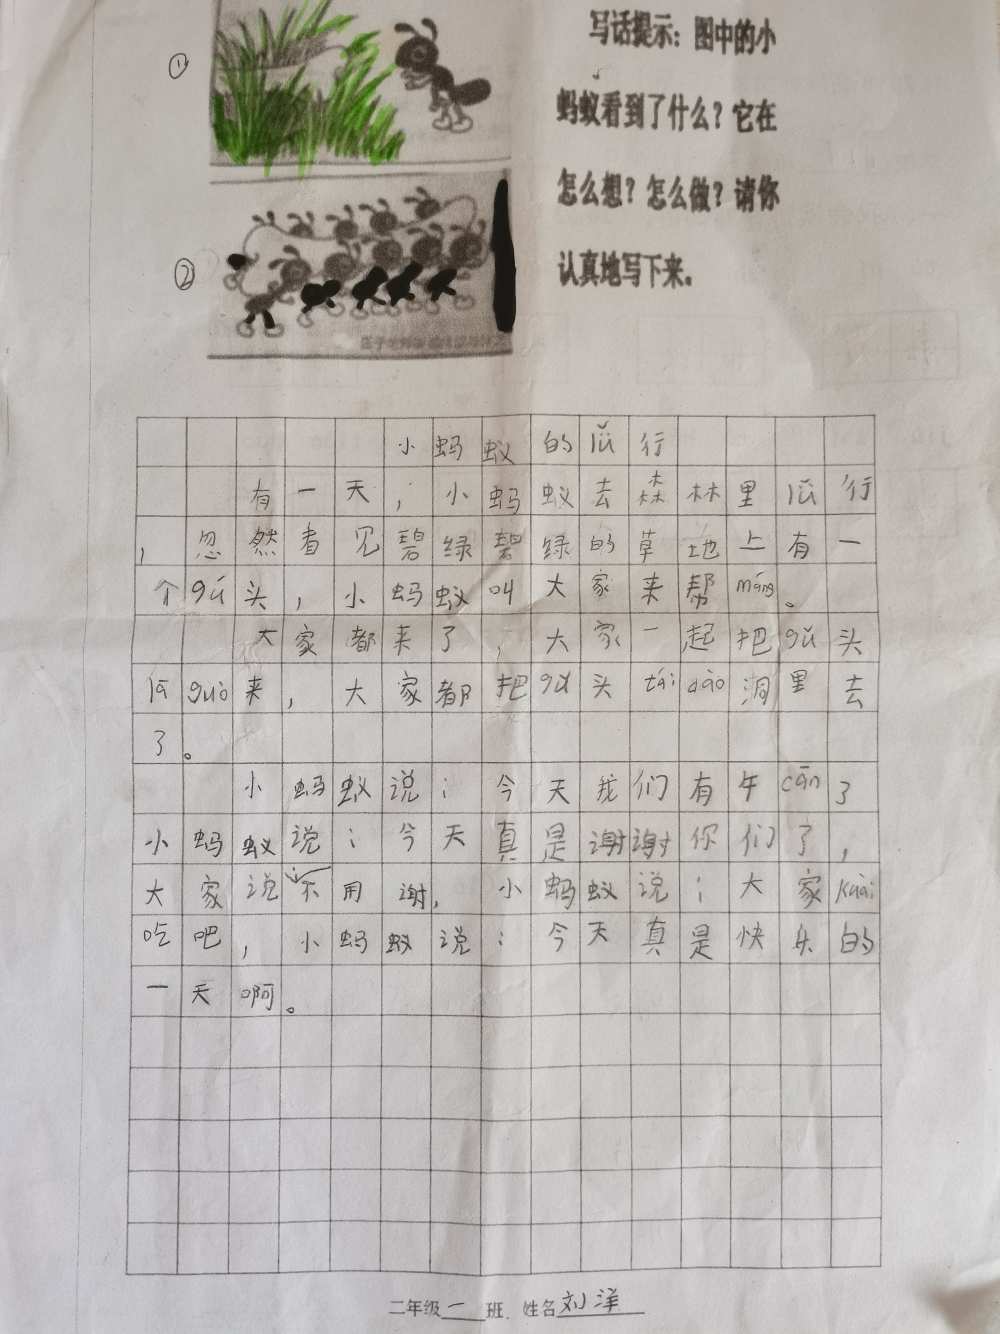 ①
写话提示：图中的小
蚂蚁看到了什么？它在
怎么想？怎么做？请你
认真地写下来。
②
小蚂蚁的lǚ行
有一天，小蚂蚁去森林里lǚ行
，忽然看见碧绿碧绿的草地上有一
个gú头，小蚂蚁叫大家来帮máng。
大家都来了，大家一起把gǔ头
lā guò来，大家都把gú头tái dào洞里去
了。
小蚂蚁说：今天我们有午cān了
小蚂蚁说：今天真是谢谢你们了，
大家说：不用谢，小蚂蚁说：大家kuài
吃吧，小蚂蚁说：今天真是快乐的
一天啊。
二年级一班．姓名刘洋